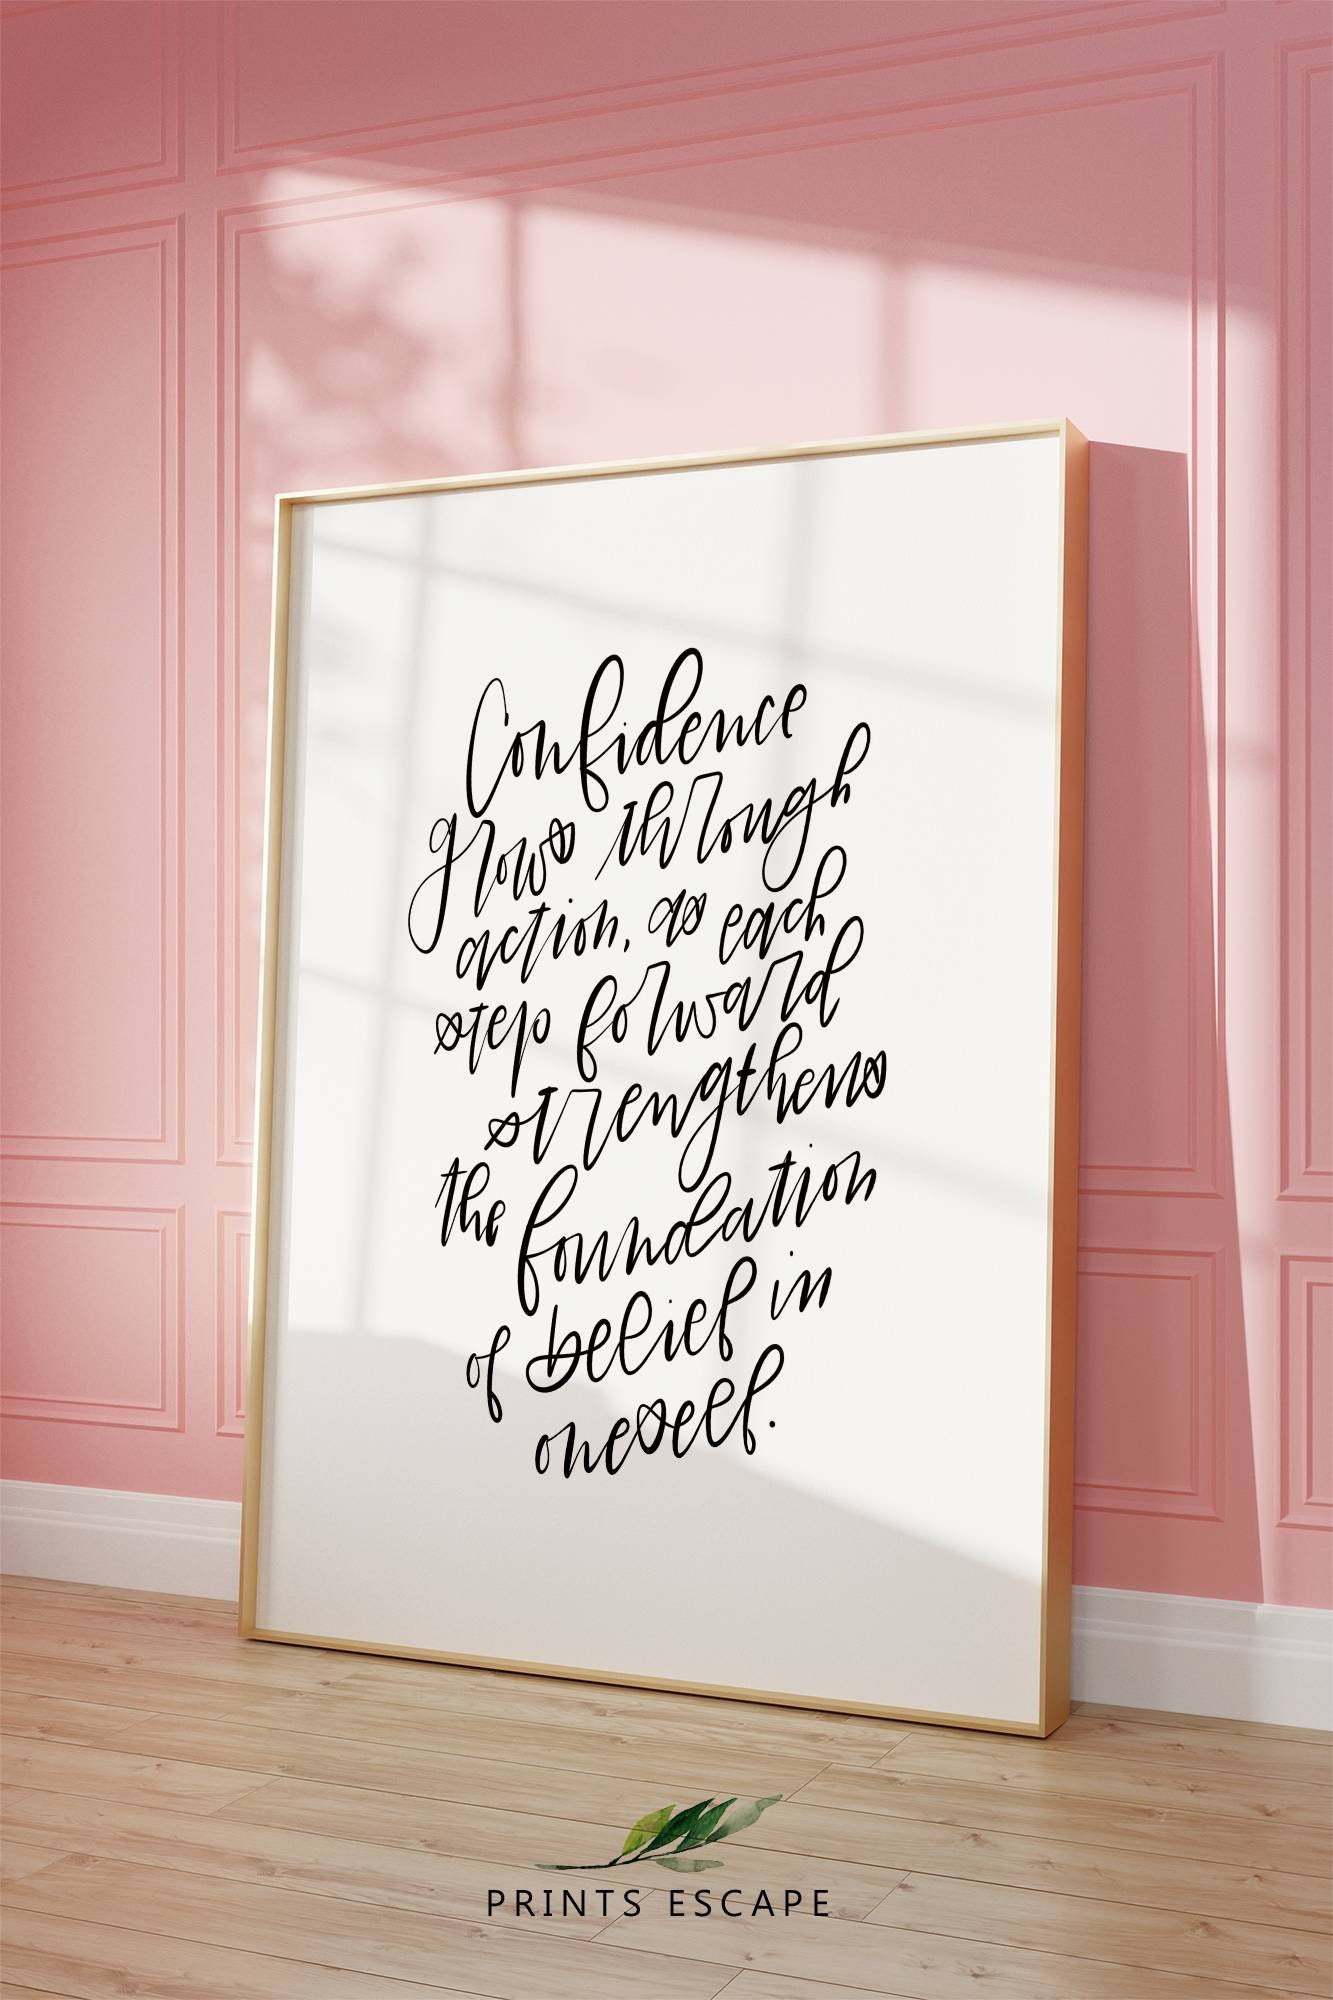 Confidence
grows through
action, as each
step forward
strengthens
the foundation
of belief in
oneself.
PRINTS ESCAPE